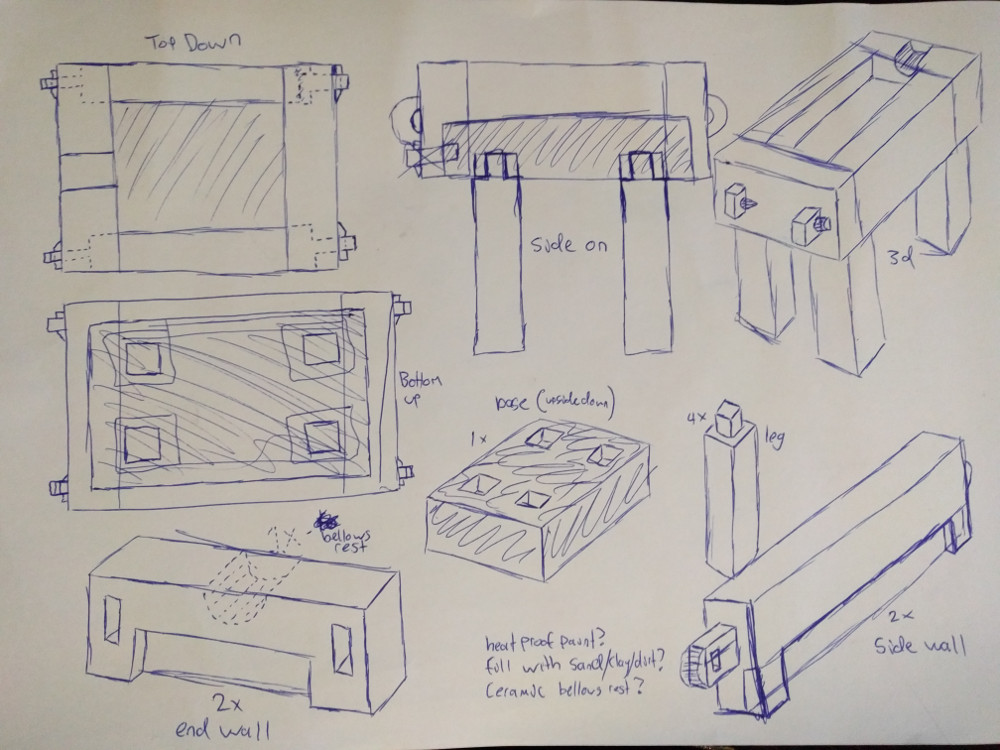 Top Down
side on
3d
Bottom
up
base (upside down)
1x
4x
leg
1x -
bellows
rest
2x
end wall
heat proof paint?
fill with sand/clay/dirt?
Ceramic bellows rest?
2x
Side wall